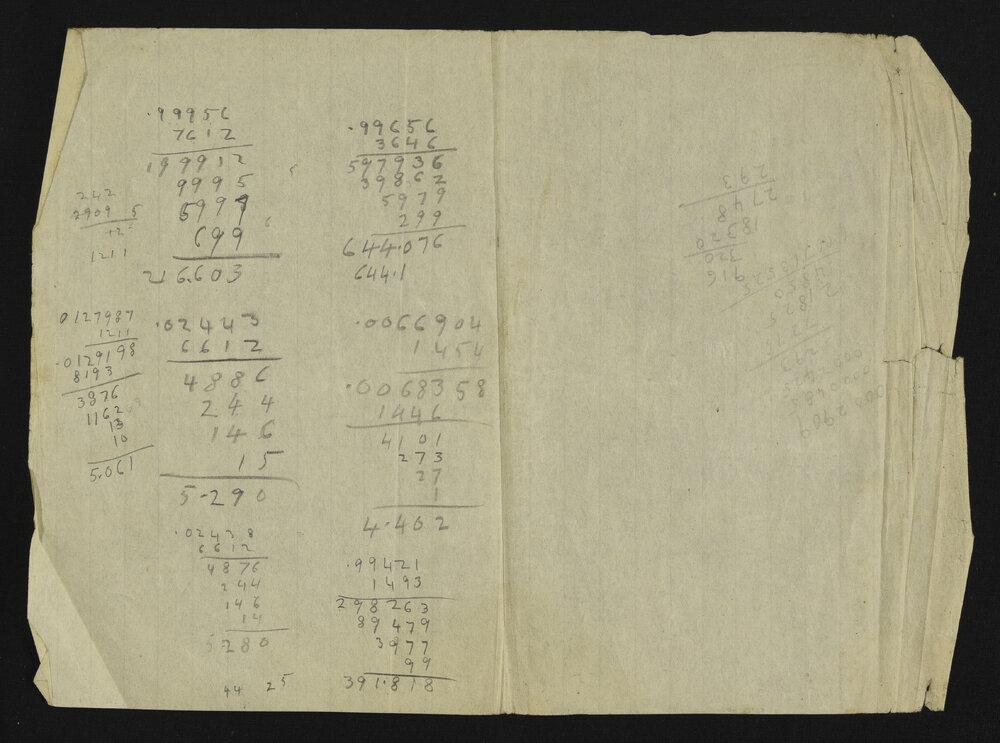 .99956
7612
199912
9995
5999
699
216.603
242
2909 5
12
1211
0127987
1211
.0129198
8193
3876
1162
13
10
5.061
.02443
6612
4886
244
146
15
5.290
.02438
6612
4876
244
146
14
5.280
44 25
.99656
3646
597936
39862
5979
299
644.076
644.1
.0066904
1454
.0068358
1446
4101
273
27
1
4.402
.99421
1493
298263
89479
3977
99
391.818
916
320
18320
2748
293